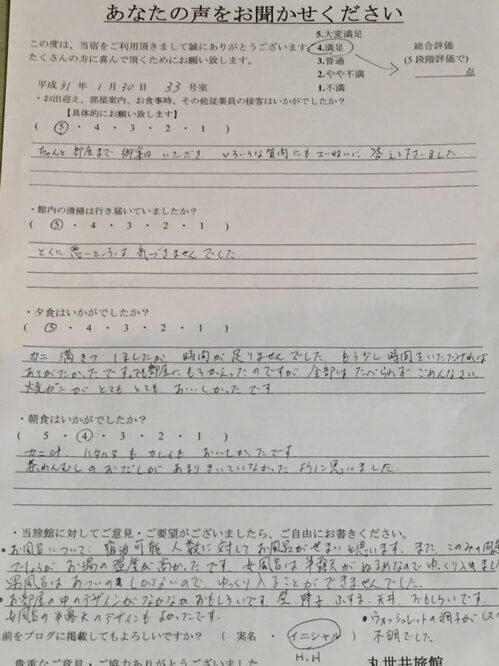 あなたの声をお聞かせください
この度は、当宿をご利用頂きまして誠にありがとうございます
たくさんの方に喜んで頂くためにお願い致します。
5.大変満足
4.満足
3.普通
2.やや不満
1.不満
総合評価
(5段階評価で)
点
平成31年1月30日 33号室
・お出迎え、部屋案内、お食事時、その他従業員の接客はいかがでしたか?
【具体的にお願い致します】
( 5 ・ 4 ・ 3 ・ 2 ・ 1 )
ちゃんと部屋まで御案内いただき いろいろな質問にもていねいに答えて下さいました
・館内の清掃は行き届いていましたか?
( 5 ・ 4 ・ 3 ・ 2 ・ 1 )
とくに悪いところは気づきませんでした
・夕食はいかがでしたか?
( 5 ・ 4 ・ 3 ・ 2 ・ 1 )
カニ満きつしましたが 時間が足りませんでした もう少し時間をいただければ
ありがたかったです。でも部屋にもちかえったのですが 全部はたべられず ごめんなさい。
焼ガニがとてもとてもおいしかったです
・朝食はいかがでしたか?
( 5 ・ 4 ・ 3 ・ 2 ・ 1 )
カニ汁 ハタハタもカレイもおいしかったです。
茶わんむしのおだしがあまりきいていなかったように思いました。
・当旅館に対してご意見・ご要望がございましたら、ご自由にお書きください。
・お風呂について、宿泊可能人数に対してお風呂がせまいと思います。また、このみの問題
でしょうが お湯の温度が高かったです。女風呂は半露天がぬるめなのでゆっくり入れました
男風呂はあついのしかないので、ゆっくり入ることができませんでした。
・お部屋の中のデザインがなかなかおもしろいです。壁 障子 ふすま、天井、おもしろいです。
女風呂の半露天のデザインもよかったです。
・ウォッシュレットの調子が
不調でした。
前をブログに掲載してもよろしいですか? ( 実名 ・ イニシャル )
H.H
貴重なご意見・ご協力ありがとうございました
丸世井旅館